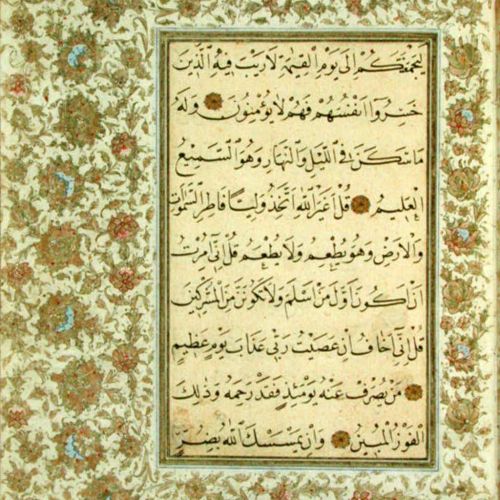 ليجمعنكم الى يوم القيمة لا ريب فيه الذين
خسروا انفسهم فهم لا يؤمنون وله
ما سكن في الليل والنهار وهو السميع
العليم قل اغير الله اتخذ وليا فاطر السموات
والارض وهو يطعم ولا يطعم قل اني امرت
ان اكون اول من اسلم ولا تكونن من المشركين
قل اني اخاف ان عصيت ربي عذاب يوم عظيم
من يصرف عنه يومئذ فقد رحمه وذلك
الفوز المبين وان يمسسك الله بضر